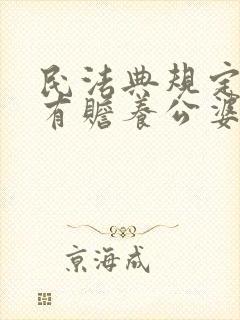 民法典规定
有赡养公婆
京海成